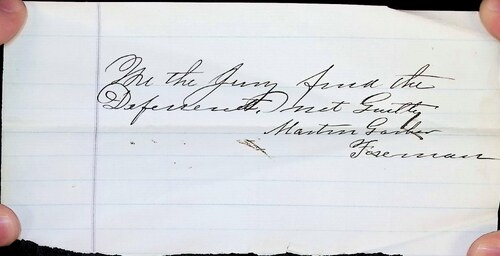 We the Jury find the
Defendent, not Guilty
Martin Garber
Foreman